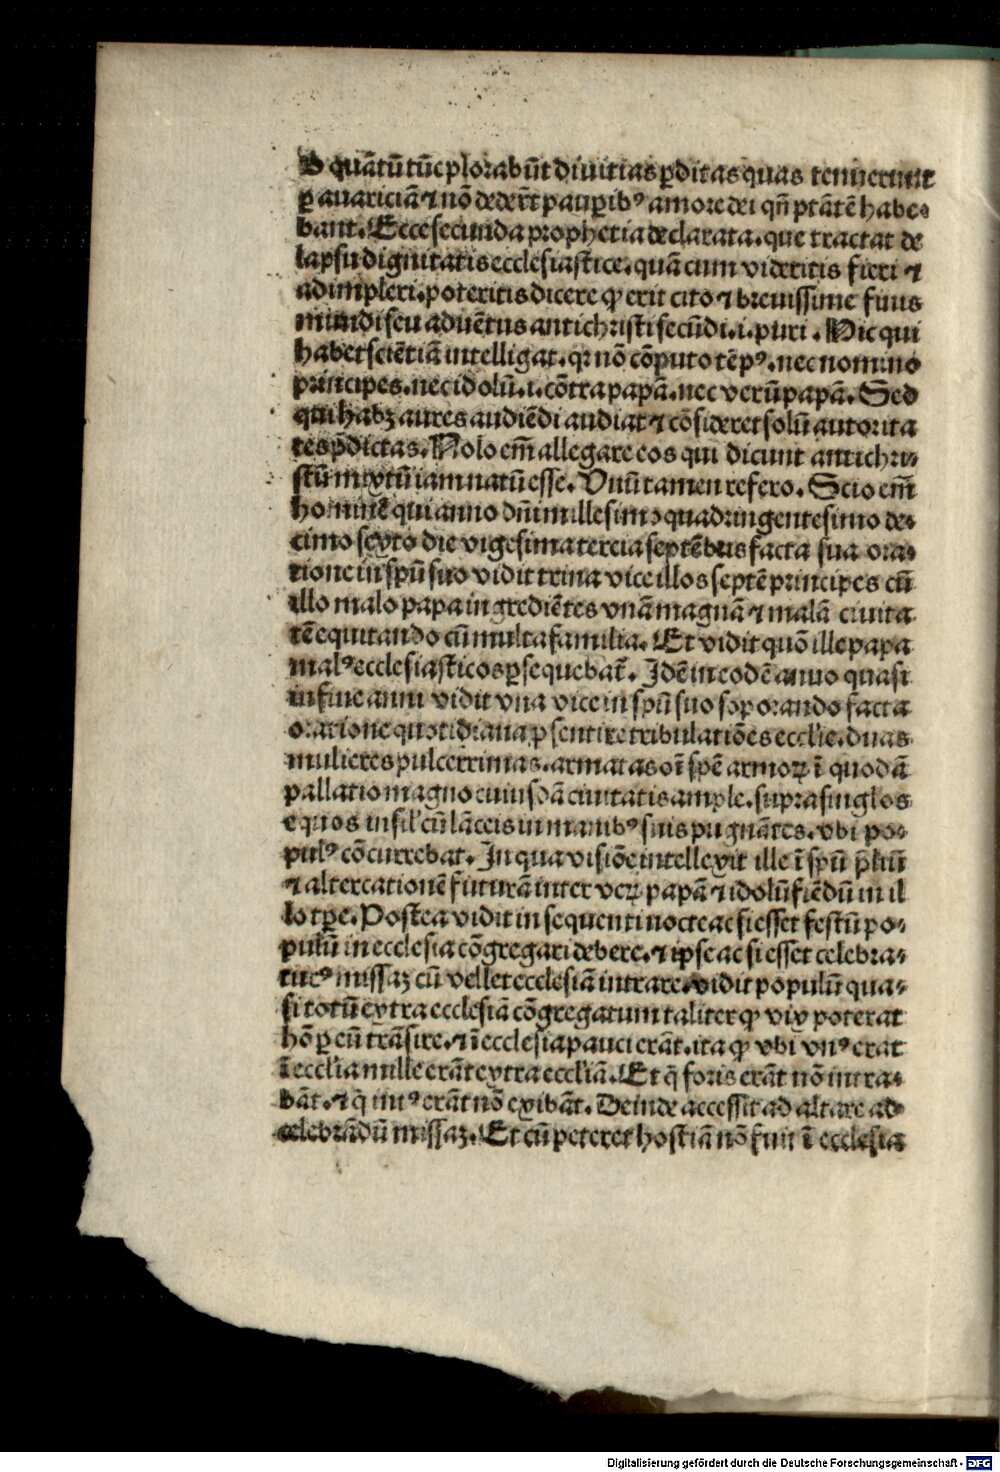 O quātū tūc plorabūt diuitias ꝑditas quas tenuerunt
ꝑ auariciā ⁊ nō dederūt pauꝑibꝰ amore dei qn̄ ptātē habe⸗
bant. Ecce secunda prophetia declarata. que tractat de
lapsu dignitatis ecclesiastice. quā cum videritis fieri ⁊
adimpleri. poteritis dicere ꝙ erit cito ⁊ breuissime finis
mundi seu aduētus antichristi secūdi .i. puri. Hic qui
habet sciētiā intelligat. qꝛ nō cōputo tēpꝰ. nec nomino
principes. nec idolū .i. cōtra papā. nec verū papā. Sed
qui habꝫ aures audiēdi audiat ⁊ cōsideret solū autorita
tes p̄dictas. Nolo em̄ allegare eos qui dicunt antichri⸗
stū mixtū iam natū esse. Vnū tamen refero. Scio em̄
hominē qui anno dn̄i millesimo quadringentesimo de⸗
cimo sexto die vigesima tercia septēbris facta sua ora⸗
tione in spū suo vidit trina vice illos septē principes cū
illo malo papa ingrediētes vnā magnā ⁊ malā ciuita
tē equitando cū multa familia. Et vidit quō ille papa
malꝰ ecclesiasticos ꝑsequebat̄. Idē in eodē anno quasi
in fine anni vidit vna vice in spū suo soporando facta
oratione quotidiana p sentire tribulatiōes ecclie. duas
mulieres pulcerrimas. armatas oī spē armoꝝ ī quodā
pallatio magno cuiusdā ciuitatis ample. supra singlos
equos insil' cū lāceis in manibꝰ suis pugnātes. vbi po⸗
pulꝰ cōcurrebat. In qua visiōe intellexit ille ī spū p̄liū
⁊ altercationē futurā inter veꝝ papā ⁊ idolū fiēdū in il
lo tꝑe. Postea vidit in sequenti nocte ac si esset festū po⸗
pulū in ecclesia cōgregari debere. ⁊ ipse ac si esset celebra⸗
turꝰ missaꝫ cū vellet ecclesiā intrare. vidit populū qua⸗
si totū extra ecclesiā cōgregatum taliter ꝙ vix poterat
hō ꝑ eū trāsire. ⁊ ī ecclesia pauci erāt. ita ꝙ vbi vnꝰ erat
ī ecclia mille erāt extra eccliā. Et q̄ foris erāt nō intra⸗
bāt. ⁊ q̄ intꝰ erāt nō exibāt. Deinde accessit ad altare ad
celebrādū missaꝫ. Et cū peteret hostiā nō fuit ī ecclesia
Digitalisierung gefördert durch die Deutsche Forschungsgemeinschaft - DFG